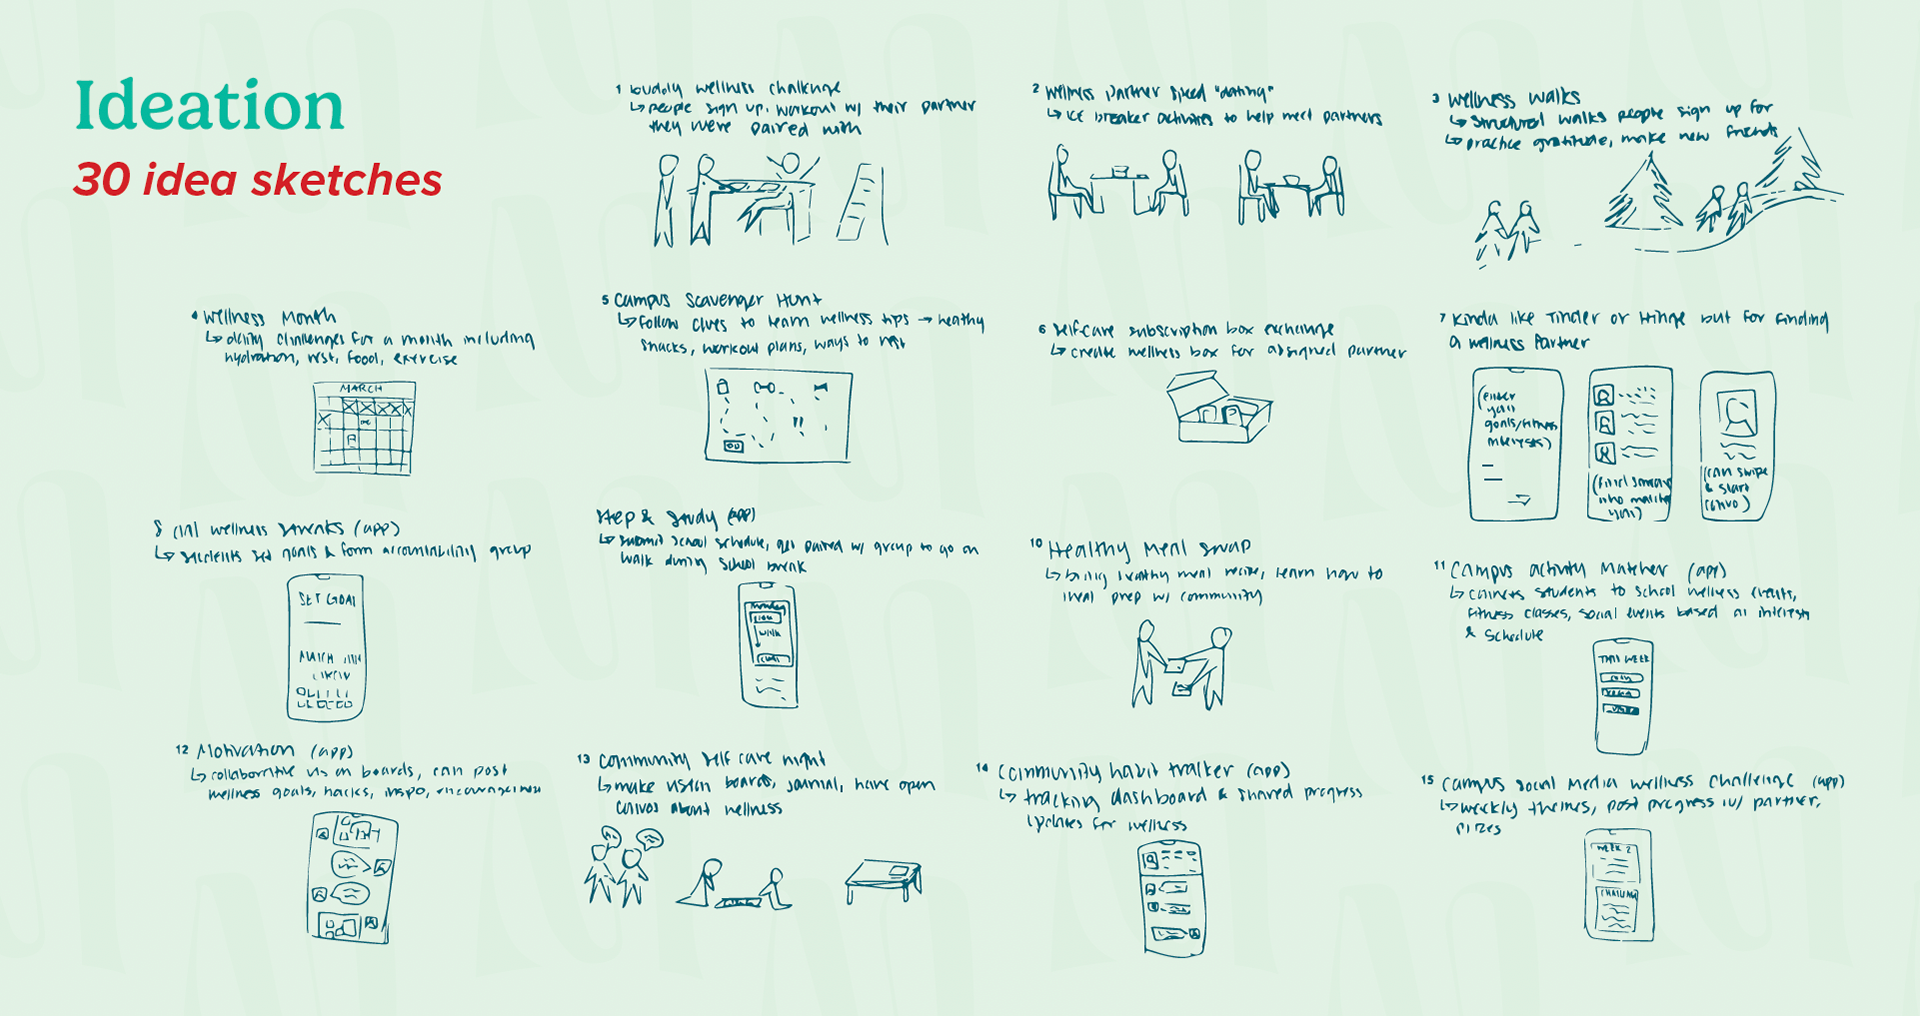 Ideation
30 idea sketches
1 buddy wellness challenge
↳ people sign up, workout w/ their partner
they were paired with
2 wellness partner speed "dating"
↳ ice breaker activities to help meet partners
3 wellness walks
↳ structured walks people sign up for
↳ practice gratitude, make new friends
4 wellness month
↳ daily challenges for a month including
hydration, rest, food, exercise
MARCH
5 campus scavenger hunt
↳ follow clues to learn wellness tips → healthy
snacks, workout plans, ways to rest
6 self-care subscription box exchange
↳ create wellness box for assigned partner
7 kinda like Tinder or Hinge but for finding
a wellness partner
(enter
your
goals/fitness
interests)
(find someone
who matches
you)
(can swipe
& start
convo)
8 wellness streaks (app)
↳ students set goals & form accountability group
SET GOAL
MATCH
step & study (app)
↳ submit school schedule, get paired w/ group to go on
walk during school break
Monday
walk
class
10 Healthy meal swap
↳ bring healthy meal recipe, learn how to
meal prep w/ community
11 campus activity matcher (app)
↳ connects students to school wellness events,
fitness classes, social events based on interests
& schedule
THIS WEEK
12 Motivation (app)
↳ collaborative vision boards, can post
wellness goals, hacks, inspo, encouragement
13 community self care night
↳ make vision boards, journal, have open
convos about wellness
14 community habit tracker (app)
↳ tracking dashboard & shared progress
updates for wellness
15 campus social media wellness challenge (app)
↳ weekly themes, post progress w/ partner,
prizes
WEEK 2